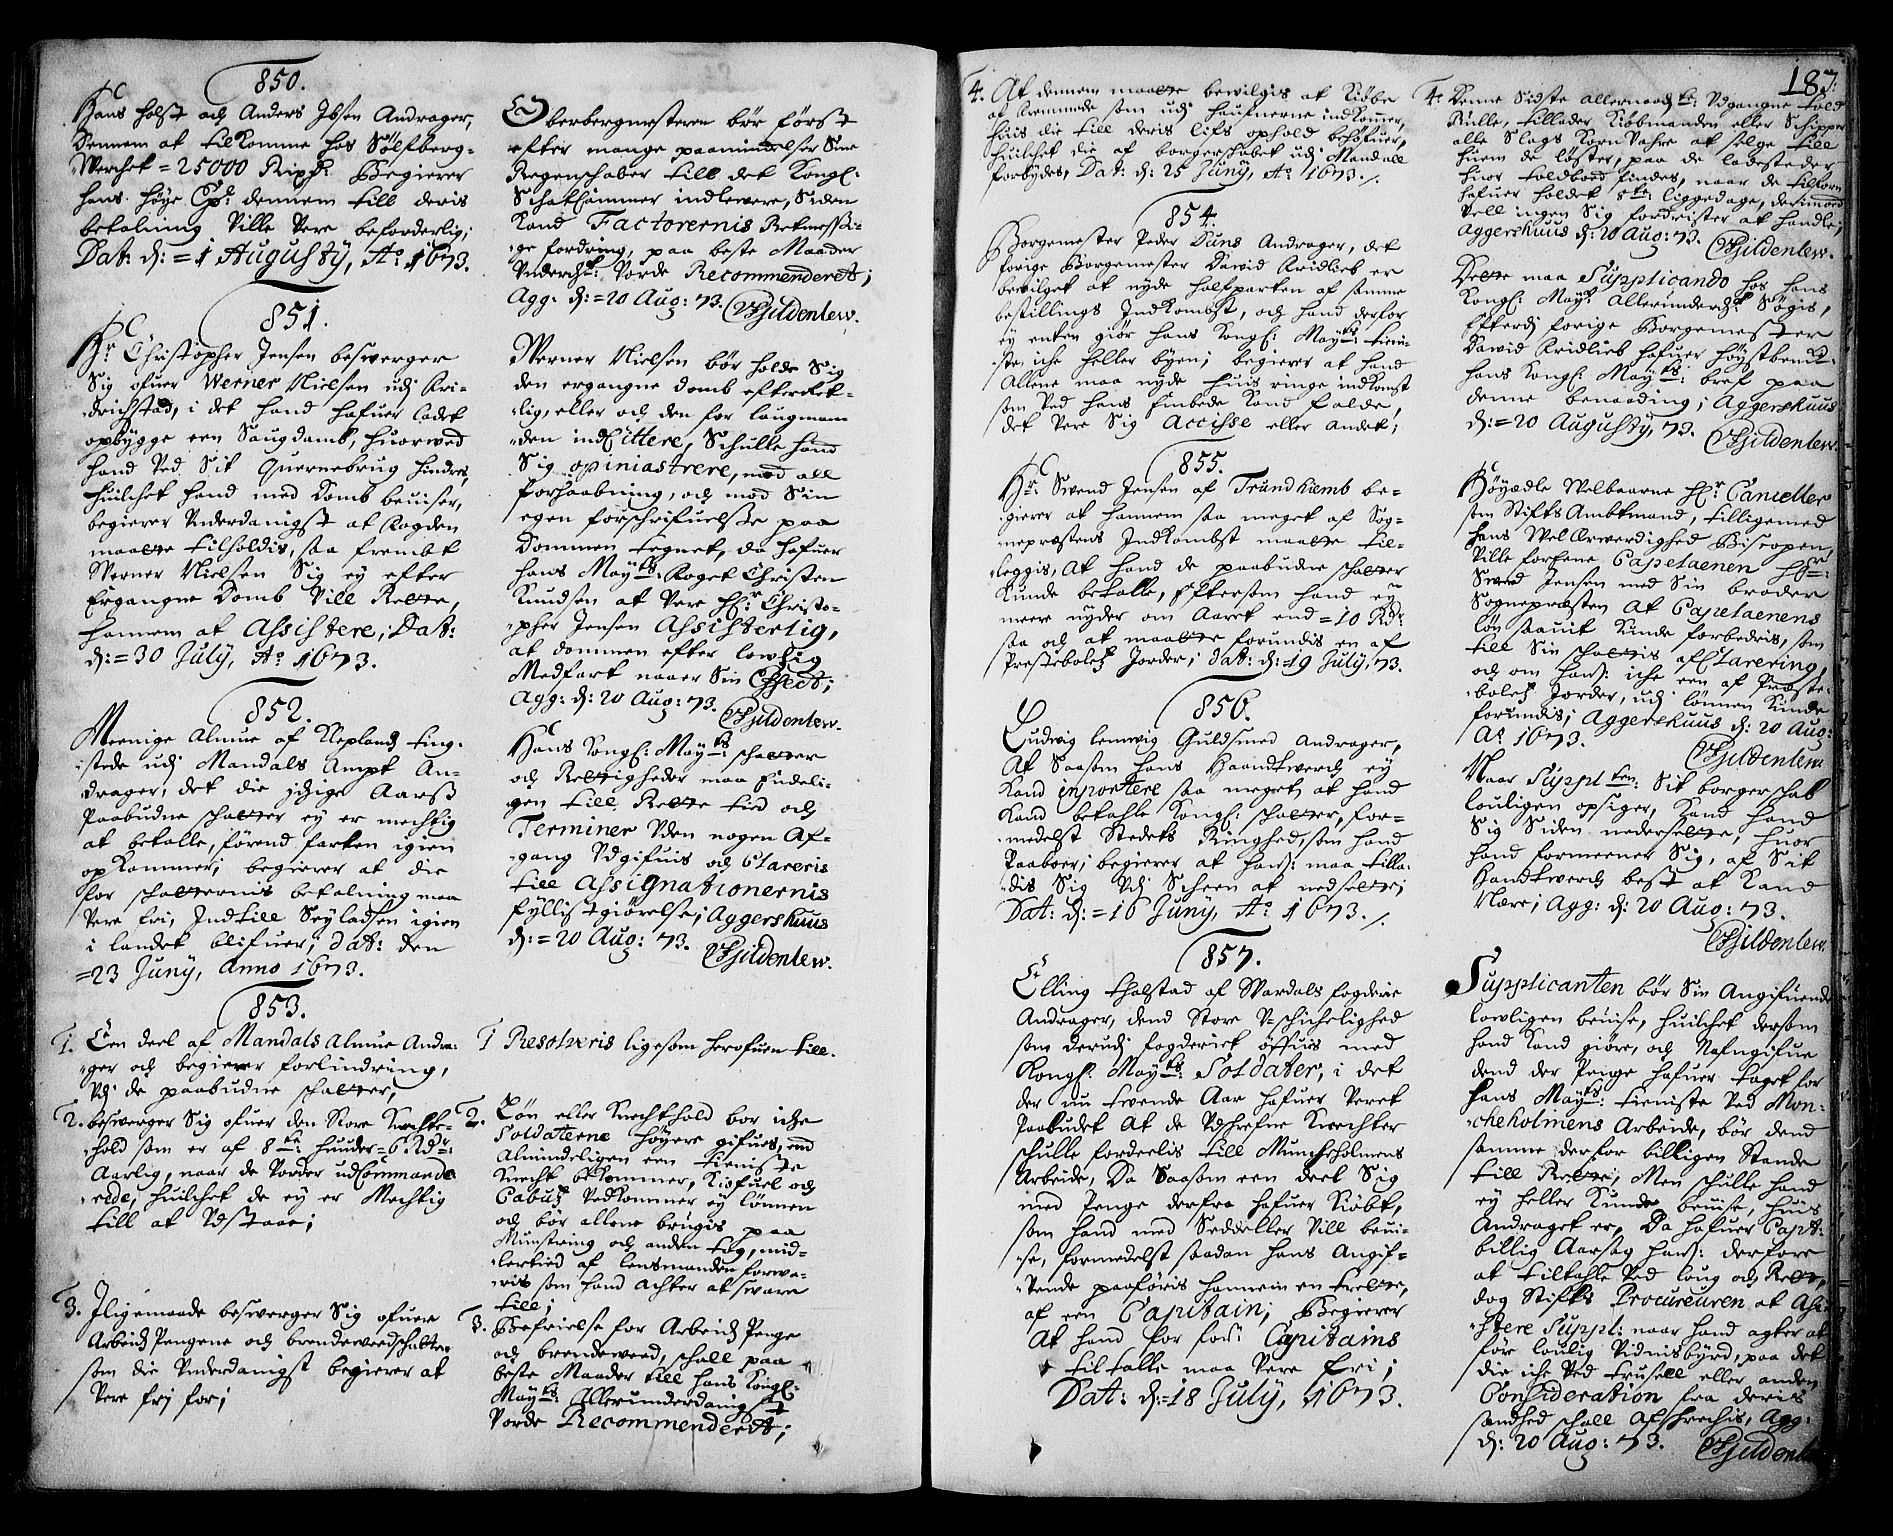 850.
Hans Holst och Anders Ibsen Andrager,
Dennem at tilkomme hos Sølfberg-
Werchet = 25000 Rixdr: Begierer
hans høye Exc: dennem till deris
betalning Ville Vere beforderlig;
Dat: d: = 1 Augusty, Ao 1673.
Oberbergmesteren bør først
efter mange paamindelser Sine
Regenschaber till det Kongl:
Schatkammer indlevere, Siden
Kand Factorernis Retmessi-
-ge fordring, paa beste Maader
Underd: Vorde Recommenderet;
Agg: d: = 20 Aug: 73. Gyldenlew.
851.
Hr Christopher Jensen beswerger
Sig ofuer Werner Nielsen udj Fri-
drichstad, i det hand hafuer ladet
opbygge een Saugdamb, huorwed
hand Ved Sit Quernebrug hindres,
huilchet hand med Domb beuiser,
begierer Underdanigst at Fogden
maatte tilholdis, saa frembt
Werner Nielsen Sig ey efter
Ergangne Domb Vill Rette,
hannem at Assistere; Dat:
d: = 30 July, Ao 1673.
Werner Nielsen bør holde Sig
den ergangne Domb efterret-
-lig, eller och den for laugmann
-den indCittere, Schulle hand
Sig opiniastrere, mod all
forhaabning, och mod Sin
egen forschrifuelse paa
Dommen tegnet, da hafuer
hans Mayts Foget Christen
Knudsen at Vere Hr: Christo-
-pher Jensen Assisterlig,
at dommen efter lowlig
Medfart naaer Sin Effect;
Agg: d: 20 Aug: 73.
Gyldenlew.
852.
Meenige Almue af Neplands ting-
-stede udj Mandals Ampt An-
drager, det die jtzige Aars
Paabudne schatter ey er mechtig
at betalle, førend farten igien
opkommer; begierer at die
for schatternis betalning maa
Vere fri, Indtill Seyladsen igien
i landet blifuer; dat: den
= 23 Juny, Anno 1673.
Hans Kongl: Mayts: schatter
och Rettigheder maa Endeli-
gen till Rette tid och
Terminer Uden nogen Af-
-gang Udgifuis och Clareris
till Assignationernis
fyllistgiørelse; Aggershuus
d: = 20 Aug: 73.
Gyldenlew.
853.
1. Een deel af Mandals Almue Andra-
-ger och begierer forlindring,
Udj de paabudne schatter,
1 Resolveris ligesom herofuen till.
2. beswerger Sig ofuer den Store Knechte-
-hold som er af 8te: hunder = 6 Rdr:
Aarlig, naar de Vorder udCommande-
-rede, huilchet de ey er Mechtig
till at Udstaae;
2. Løn eller Knechthold bør iche
Soldaterne høyere gifues, end
Almindeligen een tieniste
Knecht bekommer, Kiofuel och
Cabuds Vedkommer ey lønnen
och bør allene brugis paa
Munstring och anden tog, mid-
-lertied af lensmanden forwa-
-ris som hand achter at sware
till;
3. Iligemaade beswerger Sig ofuer
Arbeids Pengene och brendeveedschatten
som die Underdanigst begierer at
Vere frj for;
3. Befrielse for Arbeids Penge
och brendeweed, schall paa
beste Maader till hans Kongl:
Mayts: Allerunderdanigst
Vorde Recommenderet;
187.
4. At dennem maatte bewilgis at Kiøbe
af Fremmede som udj haufnerne indkommer,
huis die till deris lifs ophold behøfuer,
huilchet die af borgerskabet udj Mandall
forbydes, Dat: d: 25 Juny, Ao 1673.
4. Denne Sidste allernaadste: Udgangne told
Rulle, tillader Kiøbmanden eller Schipper
alle Slags Korn Vahre at selge till
huem de løster, paa de ladesteder
huor toldboed findes, naar de tilforn
hafuer holdet 8te: liggedage, derimod
Vell ingen Sig fordrister at handle;
Aggershuus d: 20 Aug: 73. Gyldenlew.
854.
Borgemester Peder Duns Andrager, det
forige Borgemester David Fridlieb er
bewilget at nyde halfparten af samme
bestillings Indkombst, och hand derfor
ey enten giør hans Kongl: Mayts: tieni-
-ste, iche heller byen; begierer at hand
Allene maa nyde huis ringe indkomst
som Ved hans Embede Kand falde,
det Vere Sig Accisse eller Andet;
Dette maa Supplicando hos hans
Kongl: Mayt Allerunderdst Søgis,
Efterdj forige Borgemester
David Fridlieb hafuer høystbemt:
hans Kongl: Mayts: bref paa
denne benaading; Aggershuus
d: = 20 Augusty, 73. Gyldenlew.
855.
Hr: Swend Jensen af Trundhiemb be-
-gierer at hannem saa meget af Sog-
-nepræstens Indkombst maatte til-
-leggis, At hand de paabudne schatter
Kunde betalle, Eftersom hand ey
meere nyder om Aaret end = 10 Rdr:
saa och at maatte forundis en af
Prestebolets Jorder; dat: d: 19 July, 73.
Høyædle Welbaarne Hr: Cantzeller
som Stifts Ambtmand, tilligemed
Hans WelErwerdighed Biscopen,
Ville forsene Capelaenen Hr:
Swend Jensen med Sin broder
Sognepræsten At Capelaenens
løn saauit Kunde forbedris, som
till Sin schattis afClarering,
och om hand: iche een af Præste-
-bolets Jorder, udj lønnen Kunde
forundis; Aggershuus d: 20 Aug:
Ao 1673.
Gyldenlew.
856.
Ludvig Lemwig Guldsmed Andrager,
At Saasom hans Haandtwerch ey
Kand inportere saa meget, at hand
Kand betahle Kongl: schatter, for-
-medelst Stedets Ringhed, som hand
Paaboer; begierer at hand: maa tilla-
dis Sig Udj Scheen at nedsette;
Dat: d: = 16 Juny, Ao 1673.
Naar Supplten: Sit borgerschab
louligen opsiger, Kand hand
Sig Siden nedersette, huor
hand formeener Sig, af Sit
Handtwerch best at Kand
Nære; Agg: d: 20 Aug: 73.
Gyldenlew.
857.
Elling Halstad af Wardals fogderie
Andrager, dend Store U-schichelighed
som derudj fogderiet øffuis med
Kongl: Mayts: Soldater, i det
der nu tvende Aar hafuer Veret
Paabudet At de Udschrefne Knechter
schulle forderlis till Munchholmens
Arbeide, Da Saasom een deel Sig
med Penge derfra hafuer Kiøbt,
som hand med Seddeller Vill beui-
-se, formedelst saadan hans Angif-
-vende paaføris hannem en trette,
af een Capitain; Begierer
At hand for for: Capitains
tiltalle maa Vere Fri;
Dat: d: = 18 July, 1673.
Supplicanten bør Sin Angifuende
lowligen beuise, huilchet dersom
hand Kand giøre, och Nafngifue
dend der Penge hafuer taget for
hans Mayts: tieniste Ved Mon-
-cheholmens Arbeide, bør dend
samme derfor billigen Stande
till Rette, Men schulle hand
ey heller Kunde beuise, huis
Andraget er, Da hafuer Capt:
billig Aarsag hand: derfore
at tiltahle Ved loug och Rett,
dog Stifts Procureuren at Assi-
-stere Suppl: naar hand agter at
føre loulig Vidnisbyrd, paa det
die iche Ved trusell eller anden
Consideration fra deris
sandhed schall afschrechis, Agg:
d: 20 Aug: 73. Gyldenlew